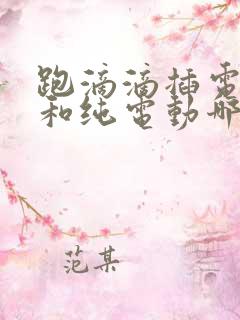 跑滴滴插電
和纯電動哪
范某